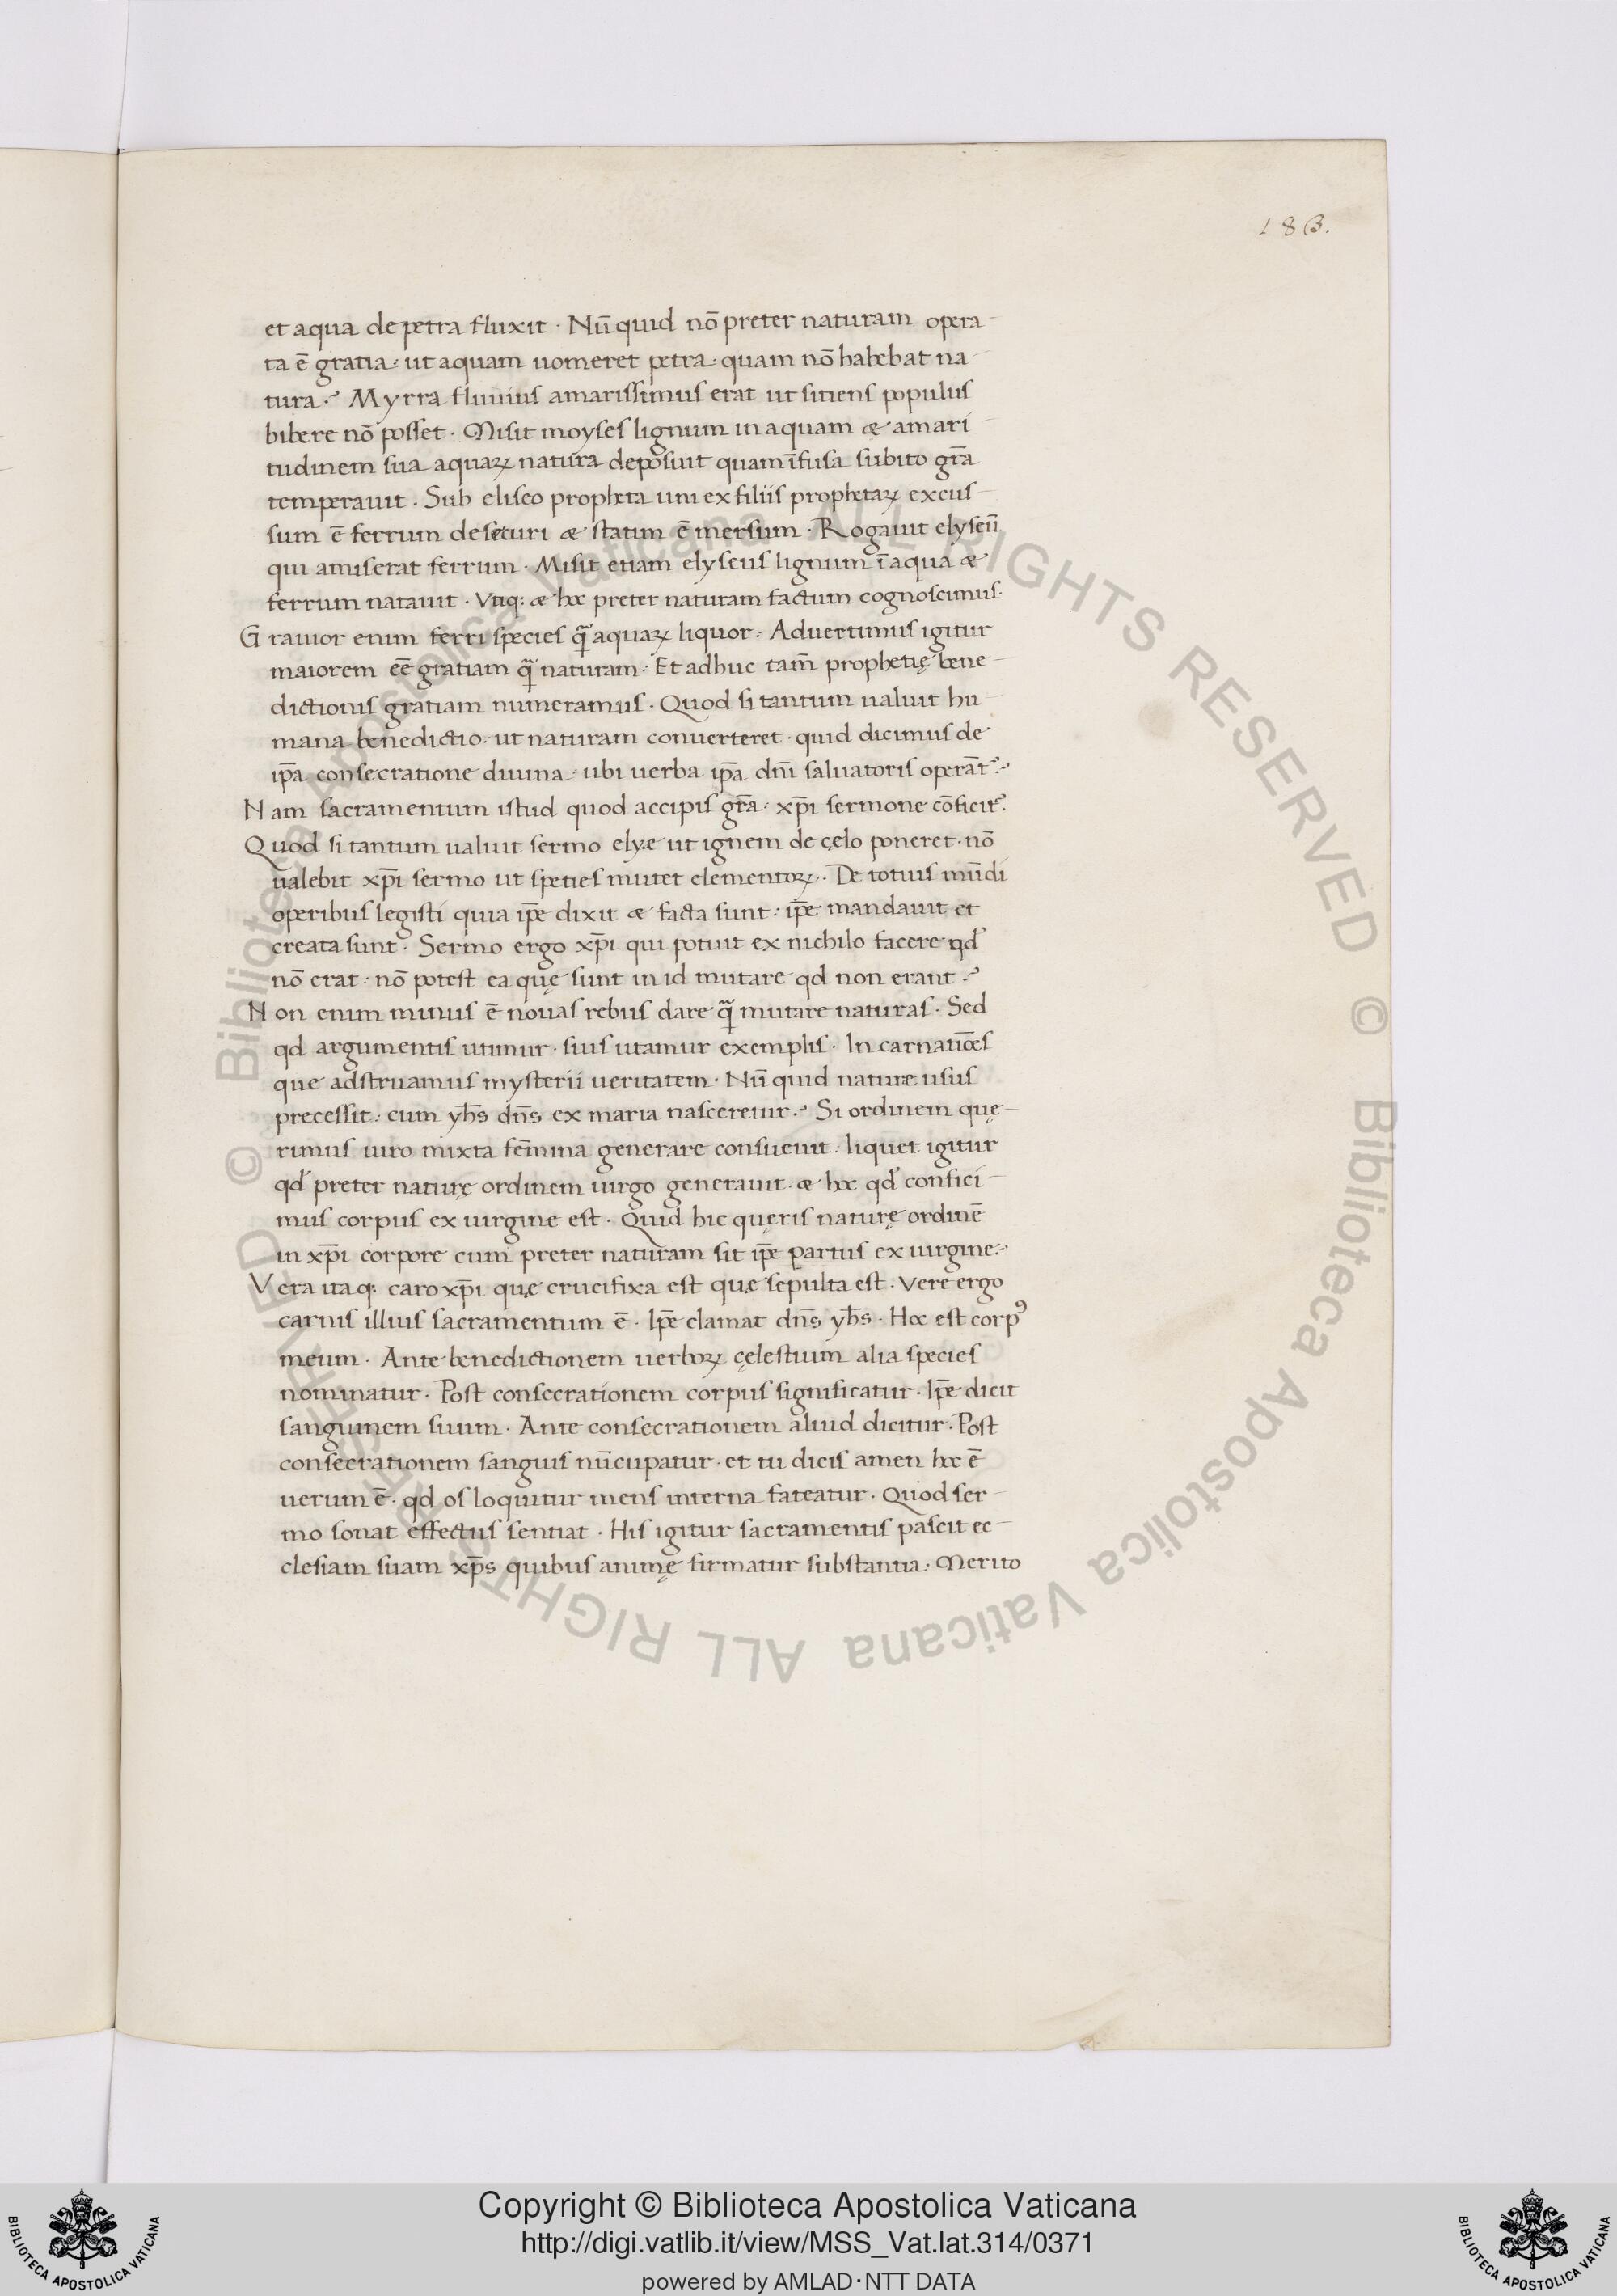 183.
et aqua de petra fluxit · Nū quid nō preter naturam opera
ta ē gratia · ut aquam uomeret petra · quam nō habebat na
tura ·? Myrra fluuius amarissimus erat ut sitiens populus
bibere nō posset · Misit moyses lignum in aquam & amari
tudinem sua aquaꝝ natura deposuit quam īfusa subito gr̄a
temperauit · Sub eliseo propheta uni ex filiis prophetaꝝ excus
sum ē ferrum de securi & statim ē mersum · Rogauit elyseū
qui amiserat ferrum · Misit etiam elyseus lignum ī aqua &
ferrum natauit · Vtiq: & hoc preter naturam factum cognoscimus·
Grauior enim ferri species q̄ aquaꝝ liquor · Aduertimus igitur
maiorem eē gratiam q̄ naturam · Et adhuc tam̄ prophetię bene
dictionis gratiam numeramus · Quod si tantum ualuit hu
mana benedictio · ut naturam conuerteret · quid dicimus de
ip̄a consecratione diuina · ubi uerba ip̄a dn̄i saluatoris operāt᷒ ·?
Nam sacramentum istud quod accipis gr̄a · xp̄i sermone cōficit᷒.
Quod si tantum ualuit sermo elyę ut ignem de cęlo poneret · nō
ualebit xp̄i sermo ut speties mutet elementoꝝ · De totius mūdi
operibus legisti quia ip̄e dixit & facta sunt · ip̄e mandauit et
creata sunt · Sermo ergo xp̄i qui potuit ex nichilo facere qd̕
nō erat · nō potest ea quę sunt in id mutare qd non erant ·?
Non enim minus ē nouas rebus dare q̄ mutare naturas · Sed
qd argumentis utimur · suis utamur exemplis · In carnatiōes
que adstruamus mysterii ueritatem · Nū quid nature usus
precessit · cum yh̄s dn̄s ex maria nasceretur ·? Si ordinem quę
rimus uiro mixta fēmina generare consueuit · liquet igitur
qd̕ preter naturę ordinem uirgo generauit · & hoc qd̕ confici
mus corpus ex uirgine est · Quid hic quęris naturę ordinē
in xp̄i corpore cum preter naturam sit ip̄e partus ex uirgine ·?
Vera itaq: caro xp̄i quę crucifixa est quę sepulta est · Vere ergo
carnis illius sacramentum ē · Ip̄e clamat dn̄s yh̄s · Hoc est corpꝰ
meum · Ante benedictionem uerboꝝ cęlestium alia species
nominatur · Post consecrationem corpus significatur · Ip̄e dicit
sanguinem suum · Ante consecrationem aliud dicitur · Post
consecrationem sanguis nūcupatur · et tu dicis amen hoc ē
uerum ē · qd os loquitur mens interna fateatur · Quod ser
mo sonat effectus sentiat · His igitur sacramentis pascit ec
clesiam suam xp̄s quibus animę firmatur substantia · Merito
© Biblioteca Apostolica Vaticana ALL RIGHTS RESERVED © Biblioteca Apostolica Vaticana ALL RIGHTS RESERVED
Copyright © Biblioteca Apostolica Vaticana
http://digi.vatlib.it/view/MSS_Vat.lat.314/0371
powered by AMLAD·NTT DATA
BIBLIOTECA APOSTOLICA VATICANA
BIBLIOTECA APOSTOLICA VATICANA